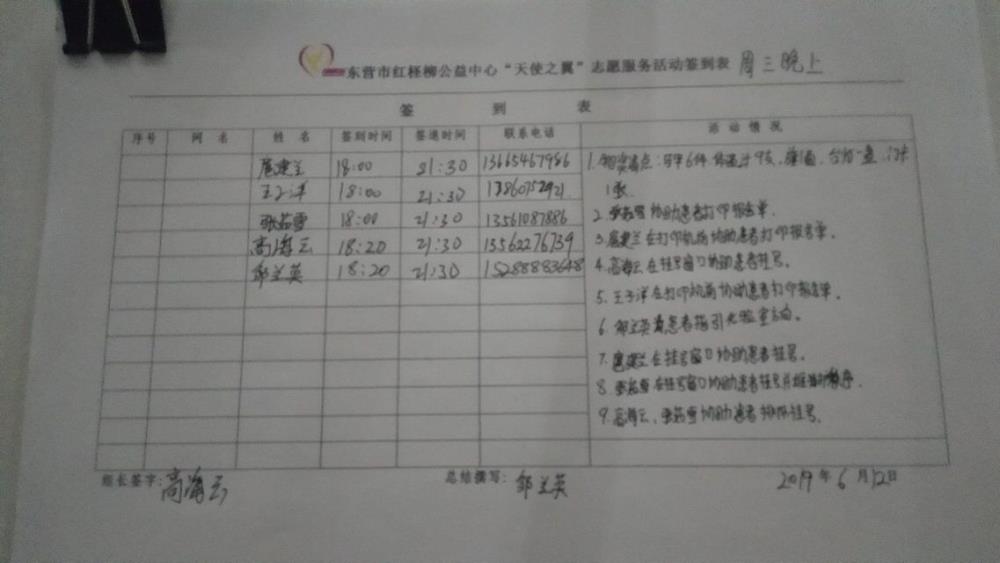 东营市红柽柳公益中心“天使之翼”志愿服务活动签到表 周三晚上
签 到 表
序号 网名 姓名 签到时间 签退时间 联系电话 活动情况
扈建兰 18:00 21:30 13665467986
王子洋 18:00 21:30
张茹雪 18:00 21:30 13561087886
高海云 18:20 21:30 13562276739
邹兰英 18:20 21:30 15288883648
1.物资清点:马甲6件
1张.
2.张茹雪协助患者打印报告单.
3.扈建兰在打印机前协助患者打印报告单.
4.高海云在挂号窗口协助患者挂号.
5.王子洋在打印机前协助患者打印报告单.
6.邹兰英为患者指引化验室方向.
7.扈建兰在挂号窗口协助患者挂号.
8.张茹雪在挂号窗口协助患者挂号并维持秩序.
9.高海云、张茹雪协助患者排队挂号.
组长签字:高海云 总结撰写:邹兰英 2019年6月12日